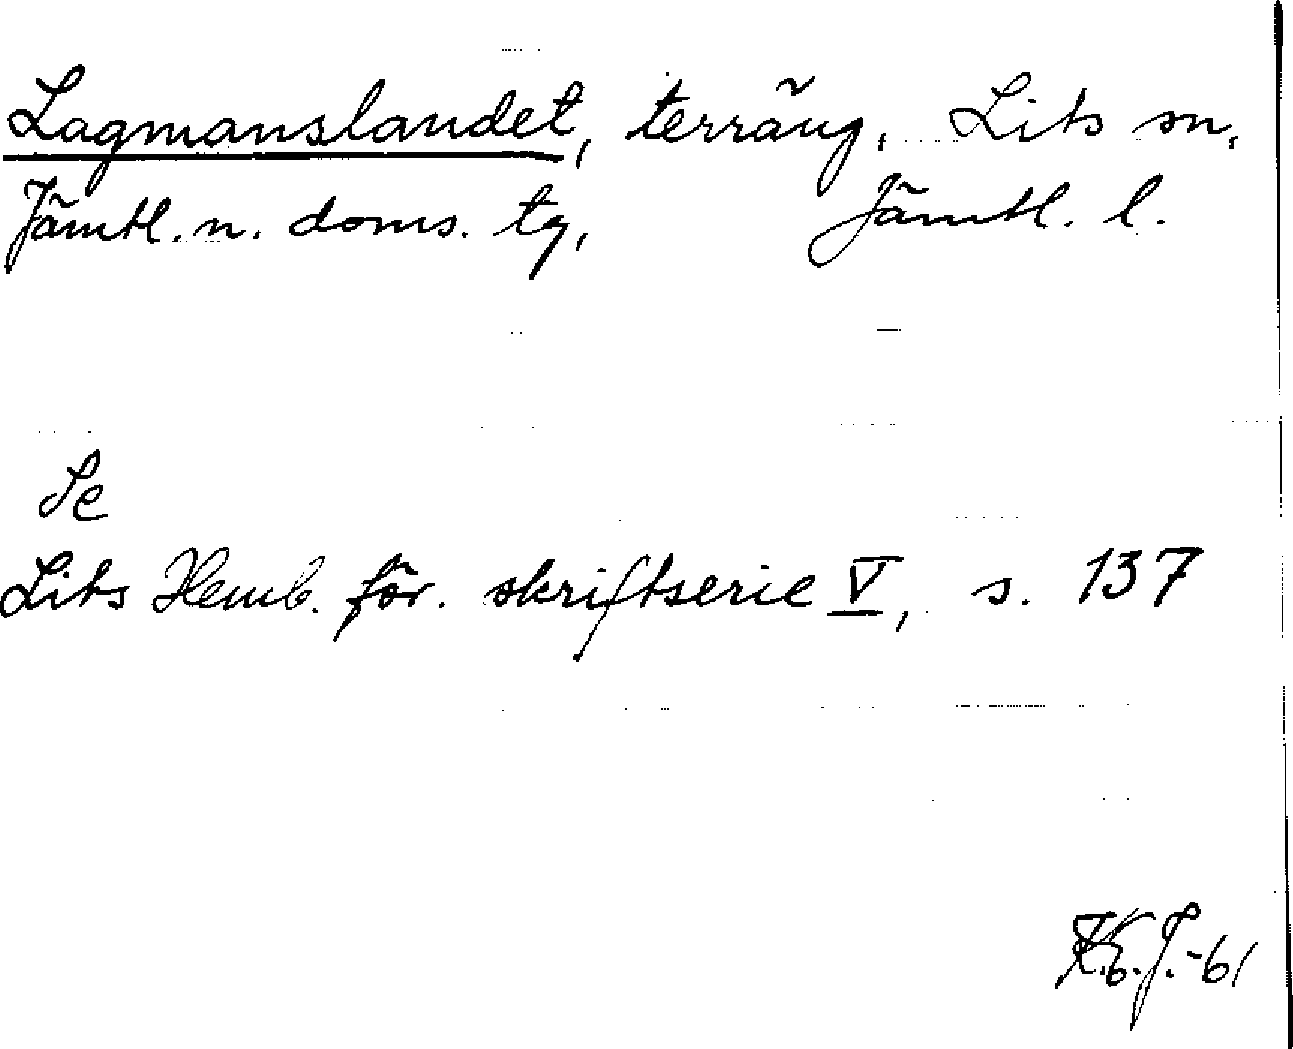 Lagmanslandet, terräng, Lits sn,
Jämtl. n. doms. tg, Jämtl. l.
Se
Lits Hemb. för. skriftserie V, s. 137
K.E.J.-61